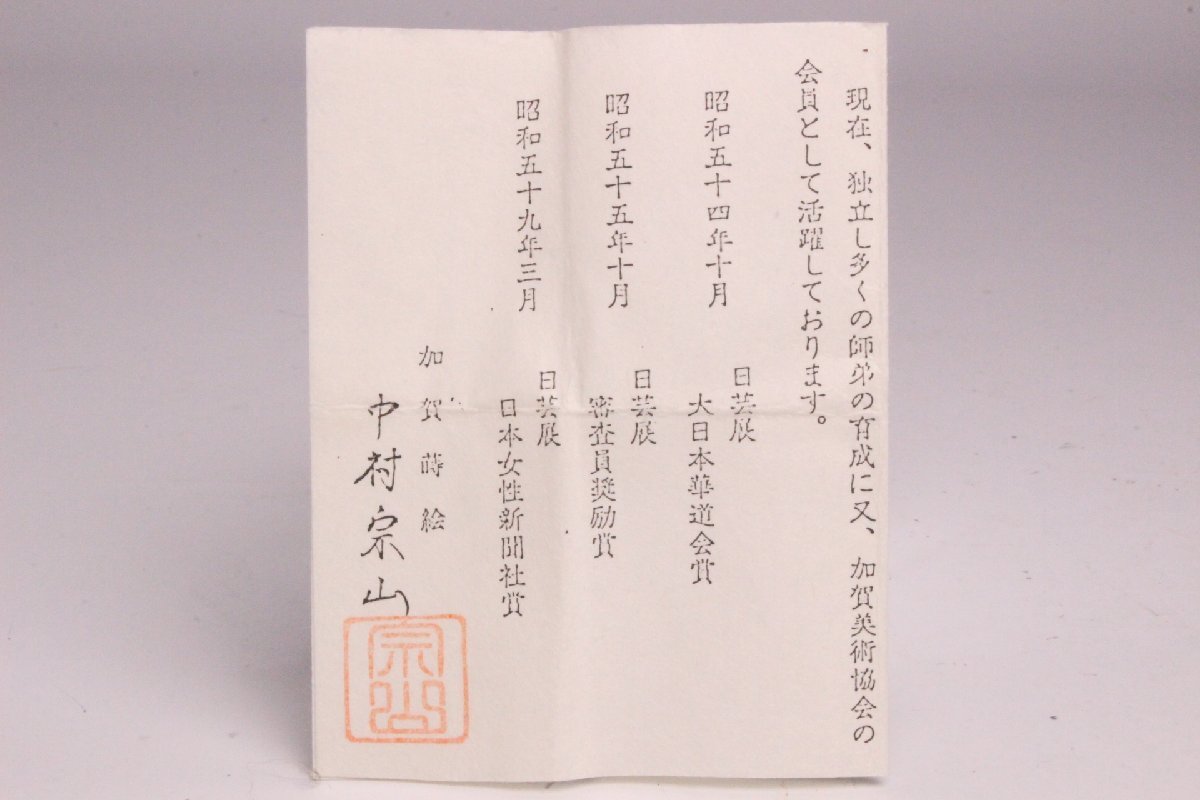 現在、独立し多くの師弟の育成に又、加賀美術協会の
会員として活躍しております。
昭和五十四年十月
日芸展
大日本華道会賞
昭和五十五年十月
日芸展
審査員奨励賞
昭和五十九年三月
日芸展
日本女性新聞社賞
加賀蒔絵
中村宗山
宗山